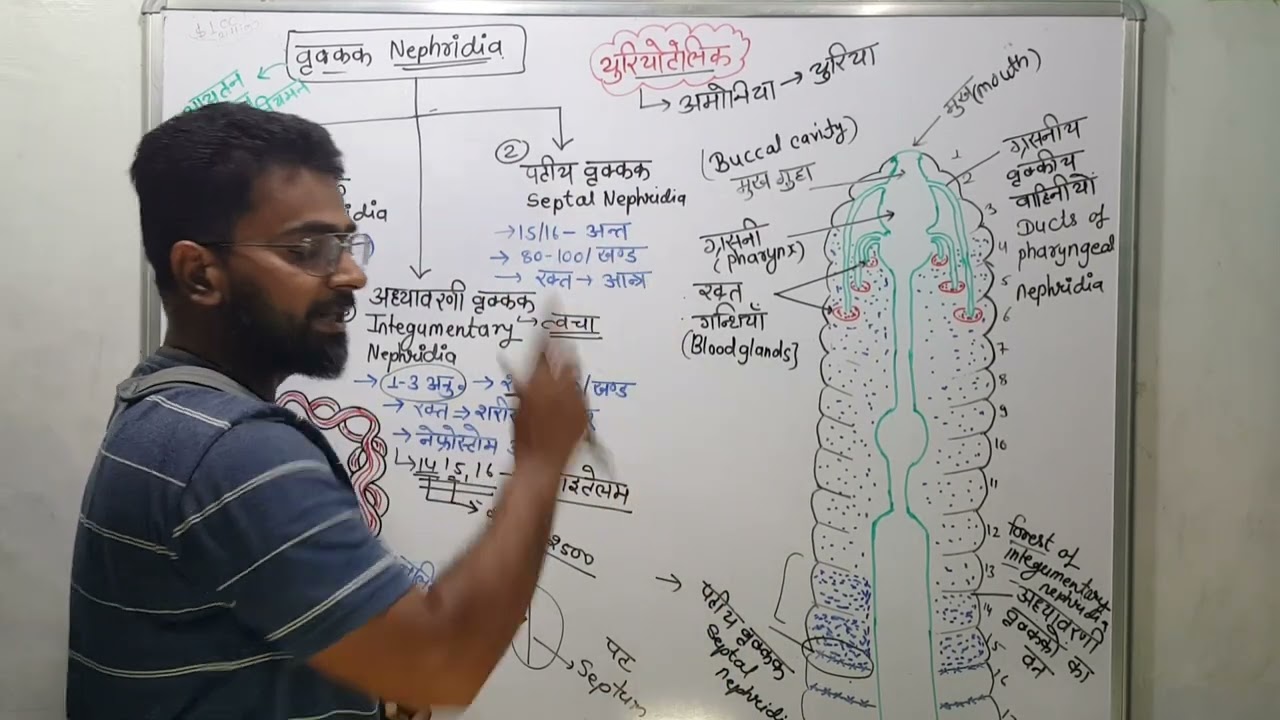 वृक्कक Nephridia
② पटीय वृक्कक
Septal Nephridia
→15/16 - अन्त
→ 80-100/ खण्ड
→ रक्त → आन्त्र
अध्यावरणी वृक्कक
Integumentary → त्वचा
Nephridia
→ 1-3 अनु. → /खण्ड
→ रक्त →
→ नेफ्रोस्टोम
↳ 14 15, 16
2500
पट
Septum
युरियोटेलिक
↳ अमोनिया → युरिया
मुख (mouth)
(Buccal cavity)
मुख गुहा
ग्रसनी
(pharynx)
रक्त
ग्रन्थियाँ
(Blood glands]
ग्रसनीय
वृक्कीय
वाहिनीयाँ
Ducts of
pharyngeal
nephridia
1
2
3
4
5
6
7
8
9
10
11
12
13
14
5
16
forest of
integumentary
nephridia
अध्यावरणी
वृक्ककों का
वन
→ पटीय वृक्कक
Septal
nephridi